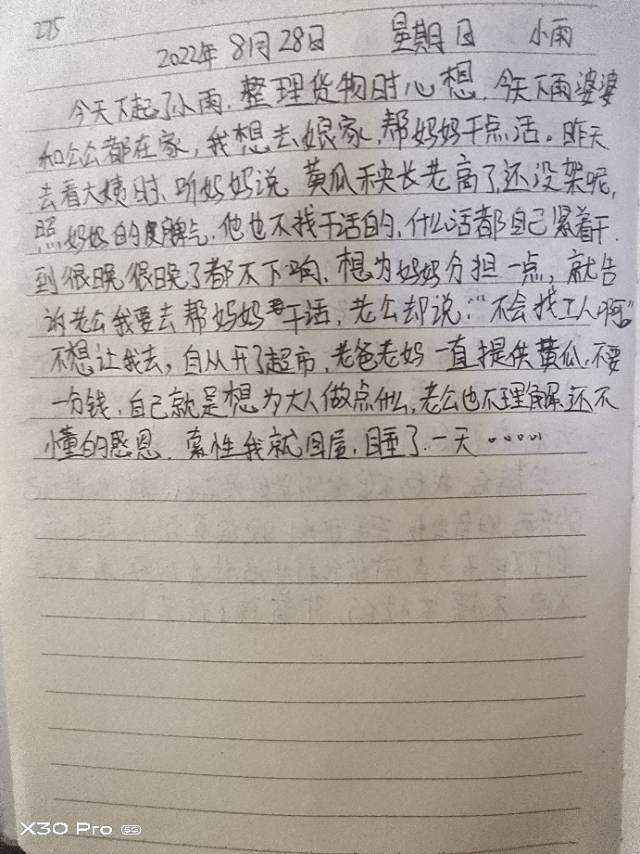 275
2022年 8月28日 星期日 小雨
今天下起了小雨.整理货物时心想,今天下雨婆婆
和公公都在家,我想去娘家,帮妈妈干点活。昨天
去看大姨时、听妈妈说 黄瓜秧长老高了,还没架呢,
照妈妈的脾气,他也不找干活的,什么活都自己紧着干.
到很晚很晚了都不下晌、想为妈妈分担一点,就告
诉老公我要去帮妈妈干活,老公却说:“不会找工人啊”
不想让我去,自从开了超市,老爸老妈一直提供黄瓜,不要
一分钱.自己就是想为大人做点什么,老公也不理解.还不
懂的感恩.索性我就回屋,睡了.一天……
X30 Pro 5G